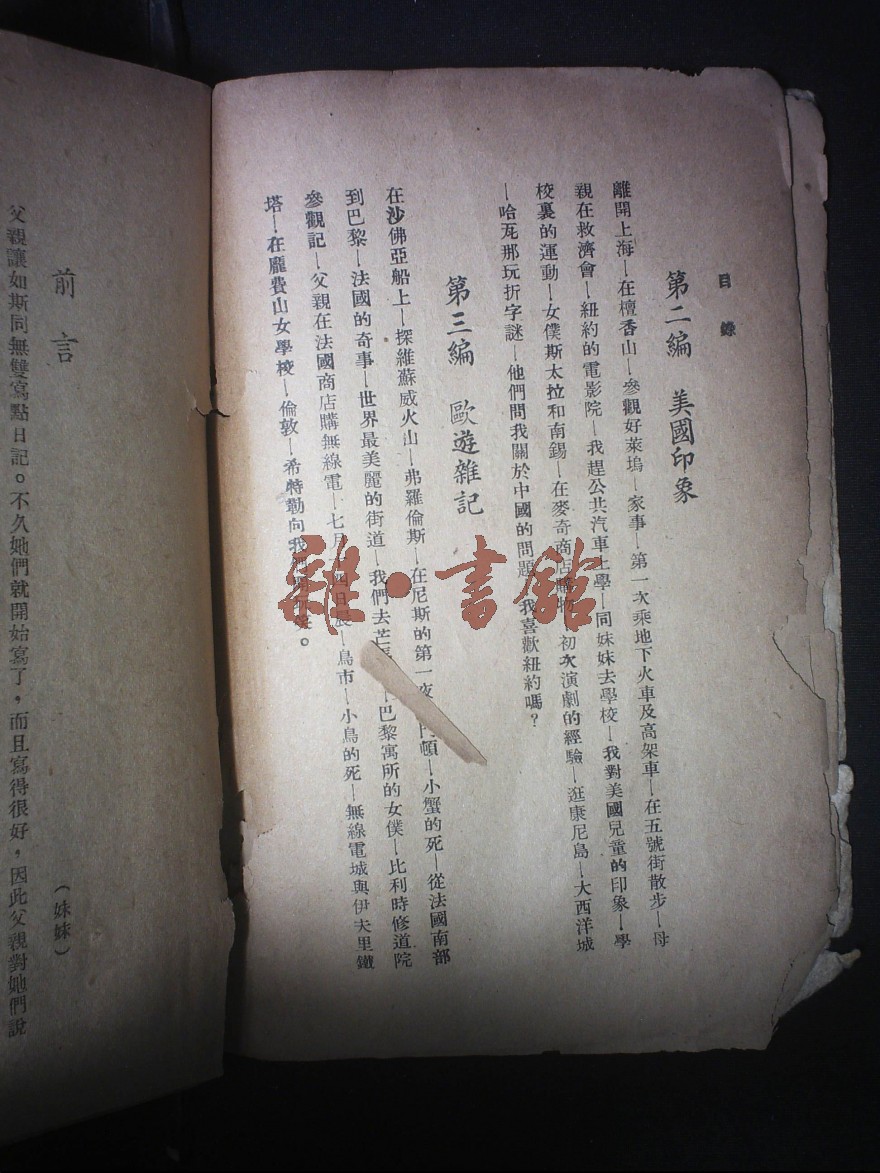 目錄
第二編　美國印象
離開上海—在檀香山—參觀好萊塢—家事—第一次乘地下火車及高架車—在五號街散步—母
親在救濟會—紐約的電影院—我趕公共汽車上學—同妹妹去學校—我對美國兒童的印象—學
校裏的運動—女僕斯太拉和南錫—在麥奇商店購物 初次演劇的經驗—逛康尼島—大西洋城
—哈瓦那玩折字謎—他們問我關於中國的問題 我喜歡紐約嗎？
第三編　歐遊雜記
在沙佛亞船上—探維蘇威火山—弗羅倫斯—在尼斯的第一夜 頓—小蟹的死—從法國南部
到巴黎—法國的奇事—世界最美麗的街道—我們去芒 —巴黎寓所的女僕—比利時修道院
參觀記—父親在法國商店購無線電—七月十四日 —鳥市—小鳥的死—無線電城與伊夫里鐵
塔—在龐費山女學校—倫敦—希特勒向我們 。
前言
（妹妹）
父親讓如斯同無雙寫點日記。不久她們就開始寫了，而且寫得很好，因此父親對她們說
雜·書館